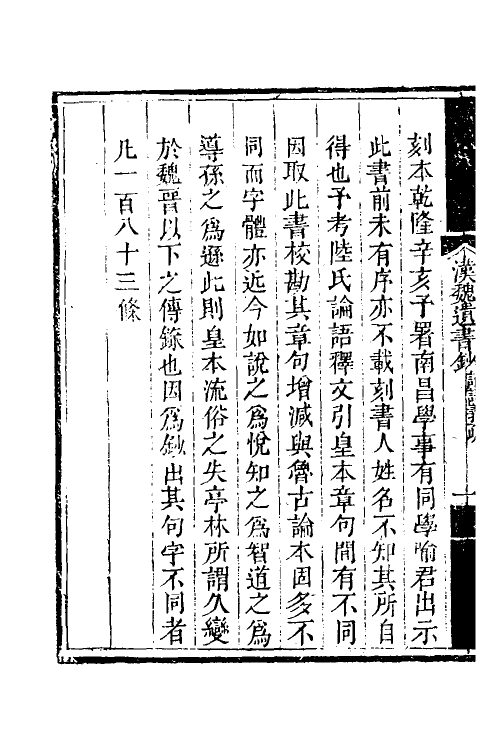 刻本乾隆辛亥予署南昌學事有同學喻君出示
此書前未有序亦不載刻書人姓名不知其所自
得也予考陸氏論語釋文引皇本章句間有不同
因取此書校勘其章句增減與魯古論本因多不
同而字體亦近今如說之為悅知之為智道之為
導孫之為遜此則皇本流俗之失亭林所謂久變
於魏晉以下之傳錄也因為鈔出其句字不同者
凡一百八十三條
漢魏遺書鈔
一